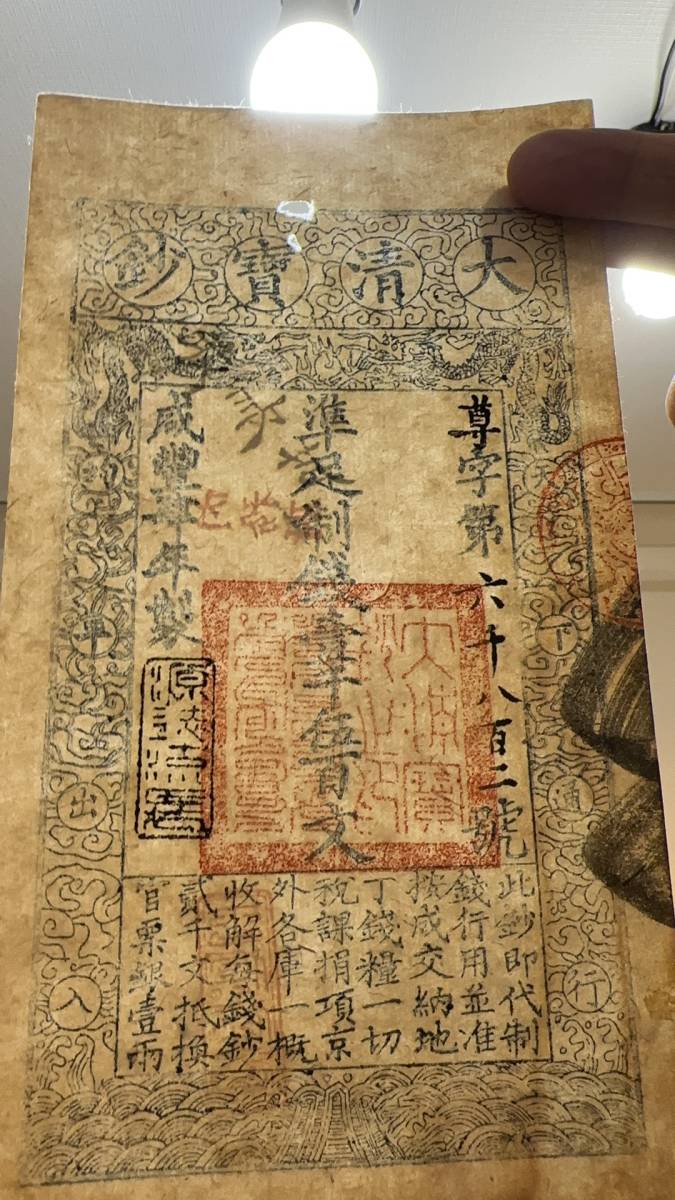 大清寶鈔
天下通行
尊字第六千八百二號
準足制錢壹千伍百文
咸豐年製
源遠流長
大清寶鈔之印
均平出入
此鈔即代制
錢行用並准
按成交納地
丁錢糧一切
稅課捐項京
外各庫一概
收解每錢鈔
貳千文抵換
官票銀壹兩